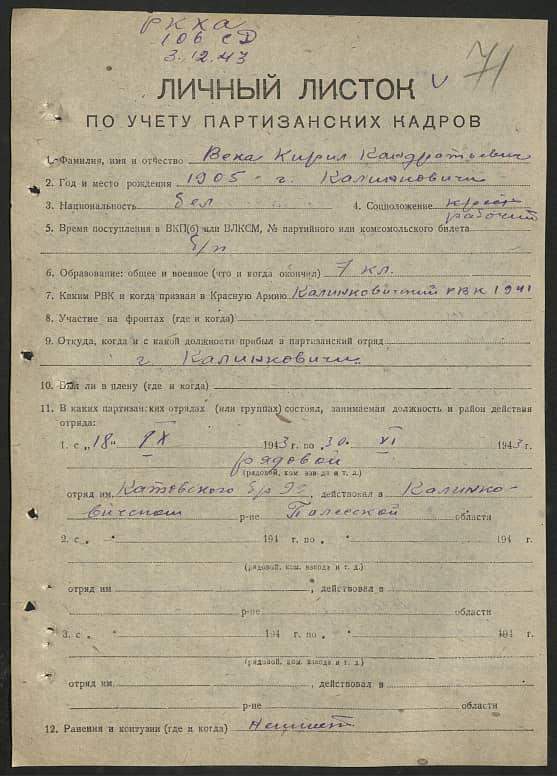 РККА
106 СД
3.12.43
71
ЛИЧНЫЙ ЛИСТОК
ПО УЧЕТУ ПАРТИЗАНСКИХ КАДРОВ
1. Фамилия, имя и отчество Века Кирил Кандратьевич
2. Год и место рождения 1905 - г. Калинковичи
3. Национальность бел 4. Соцположение крест
рабочий
5. Время поступления в ВКП(б) или ВЛКСМ, № партийного или комсомольского билета
б/п
6. Образование: общее и военное (что и когда окончил) 7 кл.
7. Каким РВК и когда призван в Красную Армию Калинковичский РВК 1941
8. Участие на фронтах (где и когда)
9. Откуда, когда и с какой должности прибыл в партизанский отряд
г. Калинковичи
10. Был ли в плену (где и когда)
11. В каких партизанских отрядах (или группах) состоял, занимаемая должность и район действия
отряда:
1. с „18" IX 1943 г. по „30. XI 1943 г.
рядовой
(рядовой, ком. взвода и т. д.)
отряд им. Катовского бр 99, действовал в Калинко-
вичском р-не Полесской области
2. с „ " 194 г. по „ " 194 г.
(рядовой, ком. взвода и т. д.)
отряд им , действовал в
р-не области
3. с „ " 194 г. по „ " 194 г.
(рядовой, ком. взвода и т. д.)
отряд им , действовал в
р-не области
12. Ранения и контузии (где и когда) Неимеет